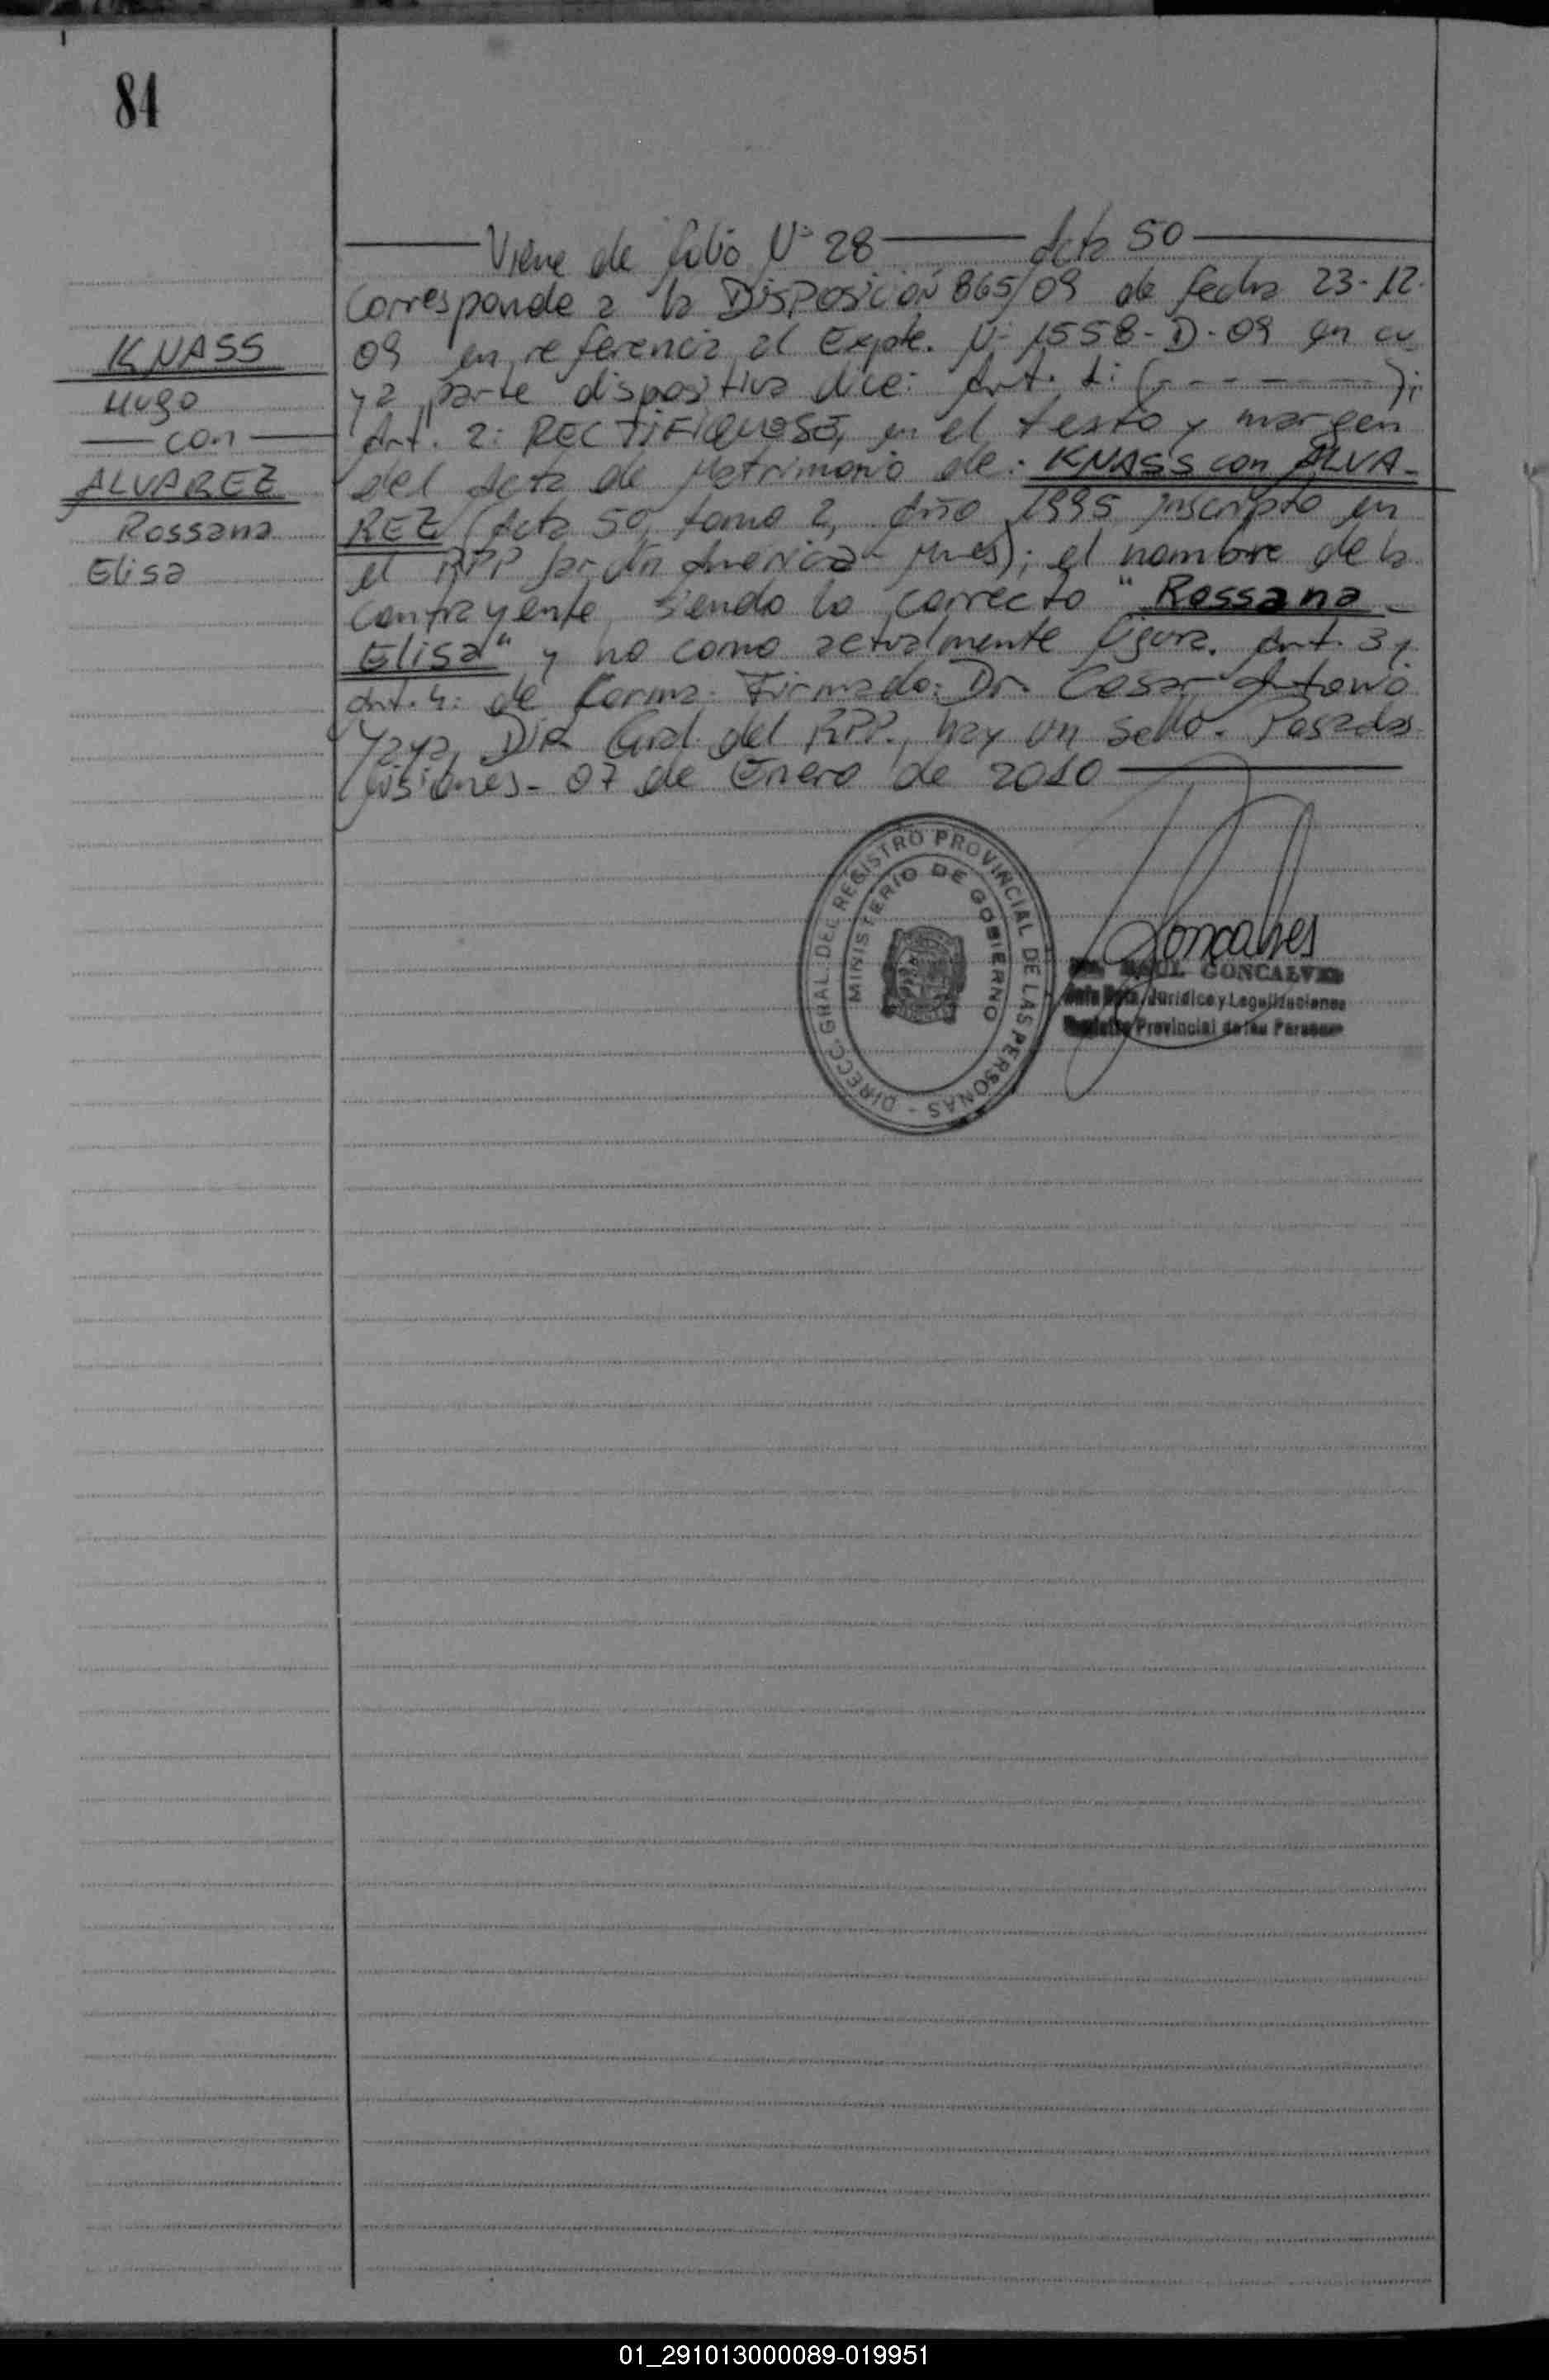 84
KNASS
Hugo
con
ALVAREZ
Rossana
Elisa
Viene de folio N° 28 Acta 50
Corresponde a la DISPOSICIÓN 865/09 de fecha 23-12-
09 en referencia al Expte. N° 1558-D-09 en cu
ya parte dispositiva dice: Art. 1: (- - - - - - -);
Art. 2: RECTIFIQUESE, en el texto y margen
del Acta de Matrimonio de: KNASS con ALVA-
REZ (Acta 50, tomo 2, Año 1995 inscripto en
el RPP Jardín América - Mnes); el nombre de la
contrayente, siendo lo correcto "Rossana
Elisa" y no como actualmente figura. Art. 3 y
Art. 4: de forma. Firmado: Dr. Cesar Antonio
Yaya, DIR Gral. del RPP., hay un sello. Posadas
Misiones- 07 de Enero de 2010
DIRECC. GRAL. DEL REGISTRO PROVINCIAL DE LAS PERSONAS -
MINISTERIO DE GOBIERNO
Goncalves
RAUL GONCALVES
Jurídica y Legalizaciones
Registro Provincial de las Personas
01_291013000089-019951